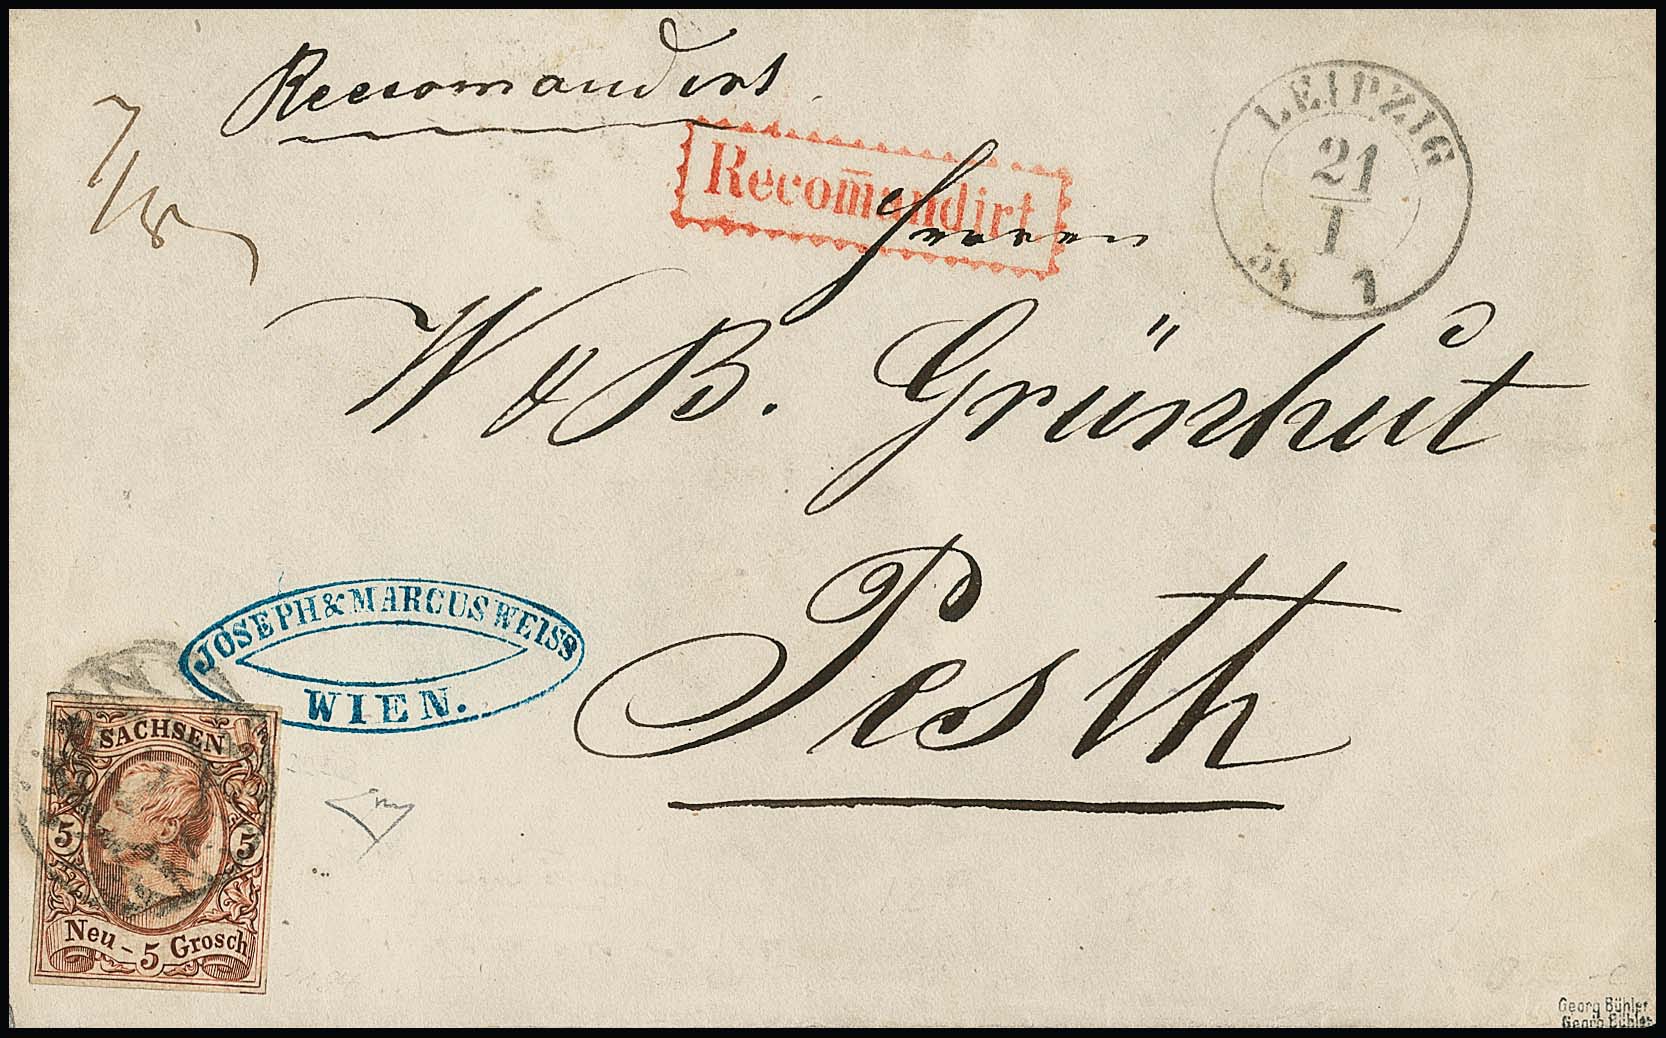 Reccomandirt
7/18
Recom̅andirt
LEIPZIG
21
I
58 1
Herren
W & B. Grünhut
Pesth
JOSEPH & MARCUS WEISS
WIEN.
SACHSEN
5 5
Neu - 5 Grosch
Georg Bühler
Georg Bühler